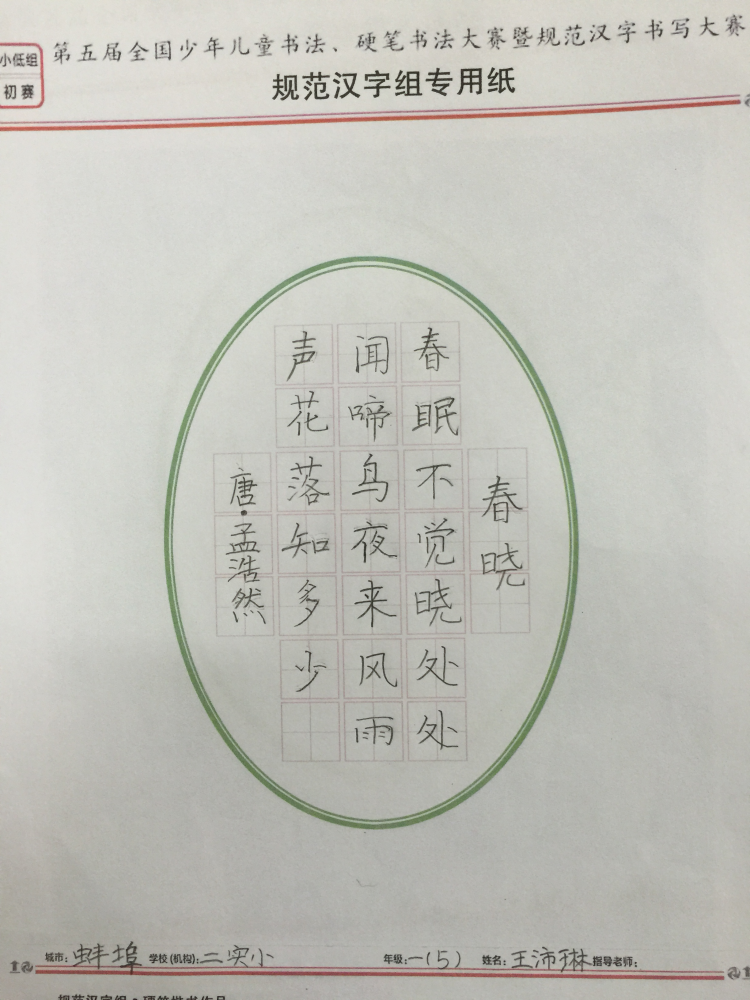 第五届全国少年儿童书法、硬笔书法大赛暨规范汉字书写大赛
小低组
初赛
规范汉字组专用纸
春晓
春眠不觉晓处处
闻啼鸟夜来风雨
声花落知多少
唐·孟浩然
城市：蚌埠 学校(机构)：二实小 年级：一(5) 姓名：王沛琳 指导老师：
规范汉字组·硬笔姓书作品